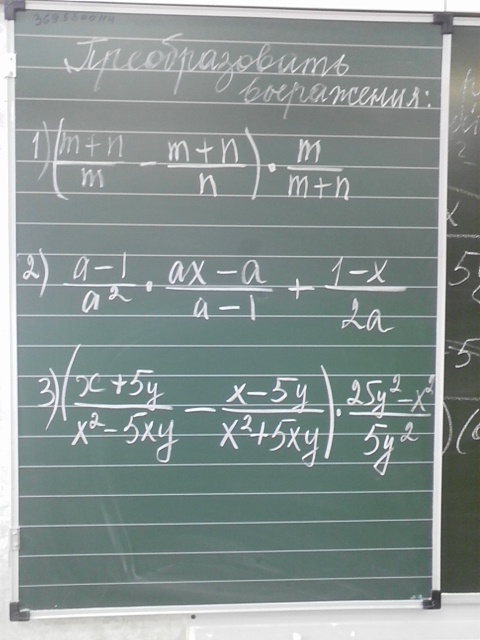 Преобразовать
выражения:
1) ((m+n)/m - (m+n)/n) · m/(m+n)
2) (a-1)/a² · (ax-a)/(a-1) + (1-x)/2a
3) ((x+5y)/(x²-5xy) - (x-5y)/(x²+5xy)) · (25y²-x²)/5y²